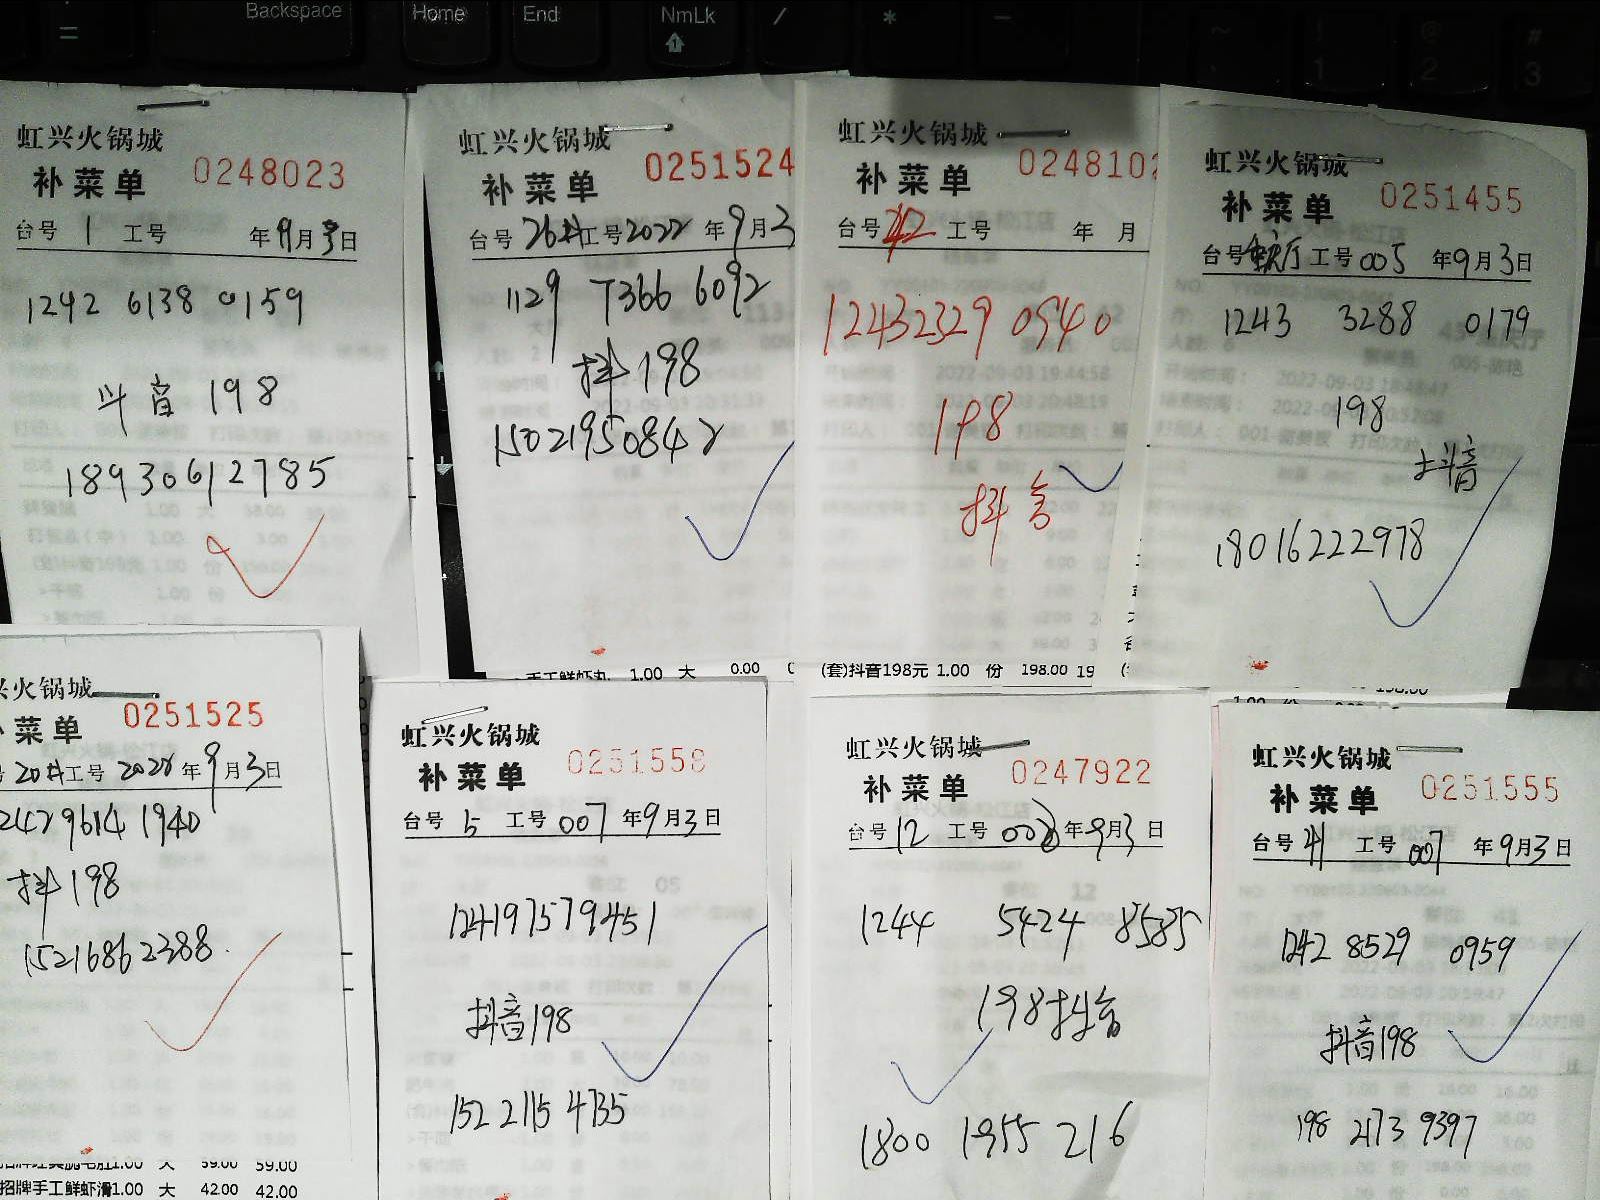 Backspace
Home
End
NmLk
/
*
=
1
2
3
虹兴火锅城
补菜单 0248023
台号 1 工号 年9月3日
1242 6138 0159
斗音 198
18930612785
虹兴火锅城
补菜单 0251524
台号 26 工号 2022 年9月3
1129 7366 6092
抖198
15021950842
手工鲜虾丸 1.00 大 0.00
虹兴火锅城
补菜单 024810
台号 42 工号 年 月
12432329 0940
198
抖音
(套)抖音198元 1.00 份 198.00 19
虹兴火锅城
补菜单 0251455
台号 工号 005 年9月3日
1243 3288 0179
198
抖音
18016222978
火锅城
菜单 0251525
20 工号 2022 年9月3日
2429614 1940
抖198
15216862388.
1.00 大 59.00 59.00
招牌手工鲜虾滑1.00 大 42.00 42.00
虹兴火锅城
补菜单 0251558
台号 5 工号 007 年9月3日
124197579451
抖音198
152 2115 4735
虹兴火锅城
补菜单 0247922
台号 12 工号 008 年9月3日
1244 5424 8585
198抖音
1800 1955 216
虹兴火锅城
补菜单 0251555
台号 41 工号 007 年9月3日
1242 8529 0959
抖音198
198 2173 9397